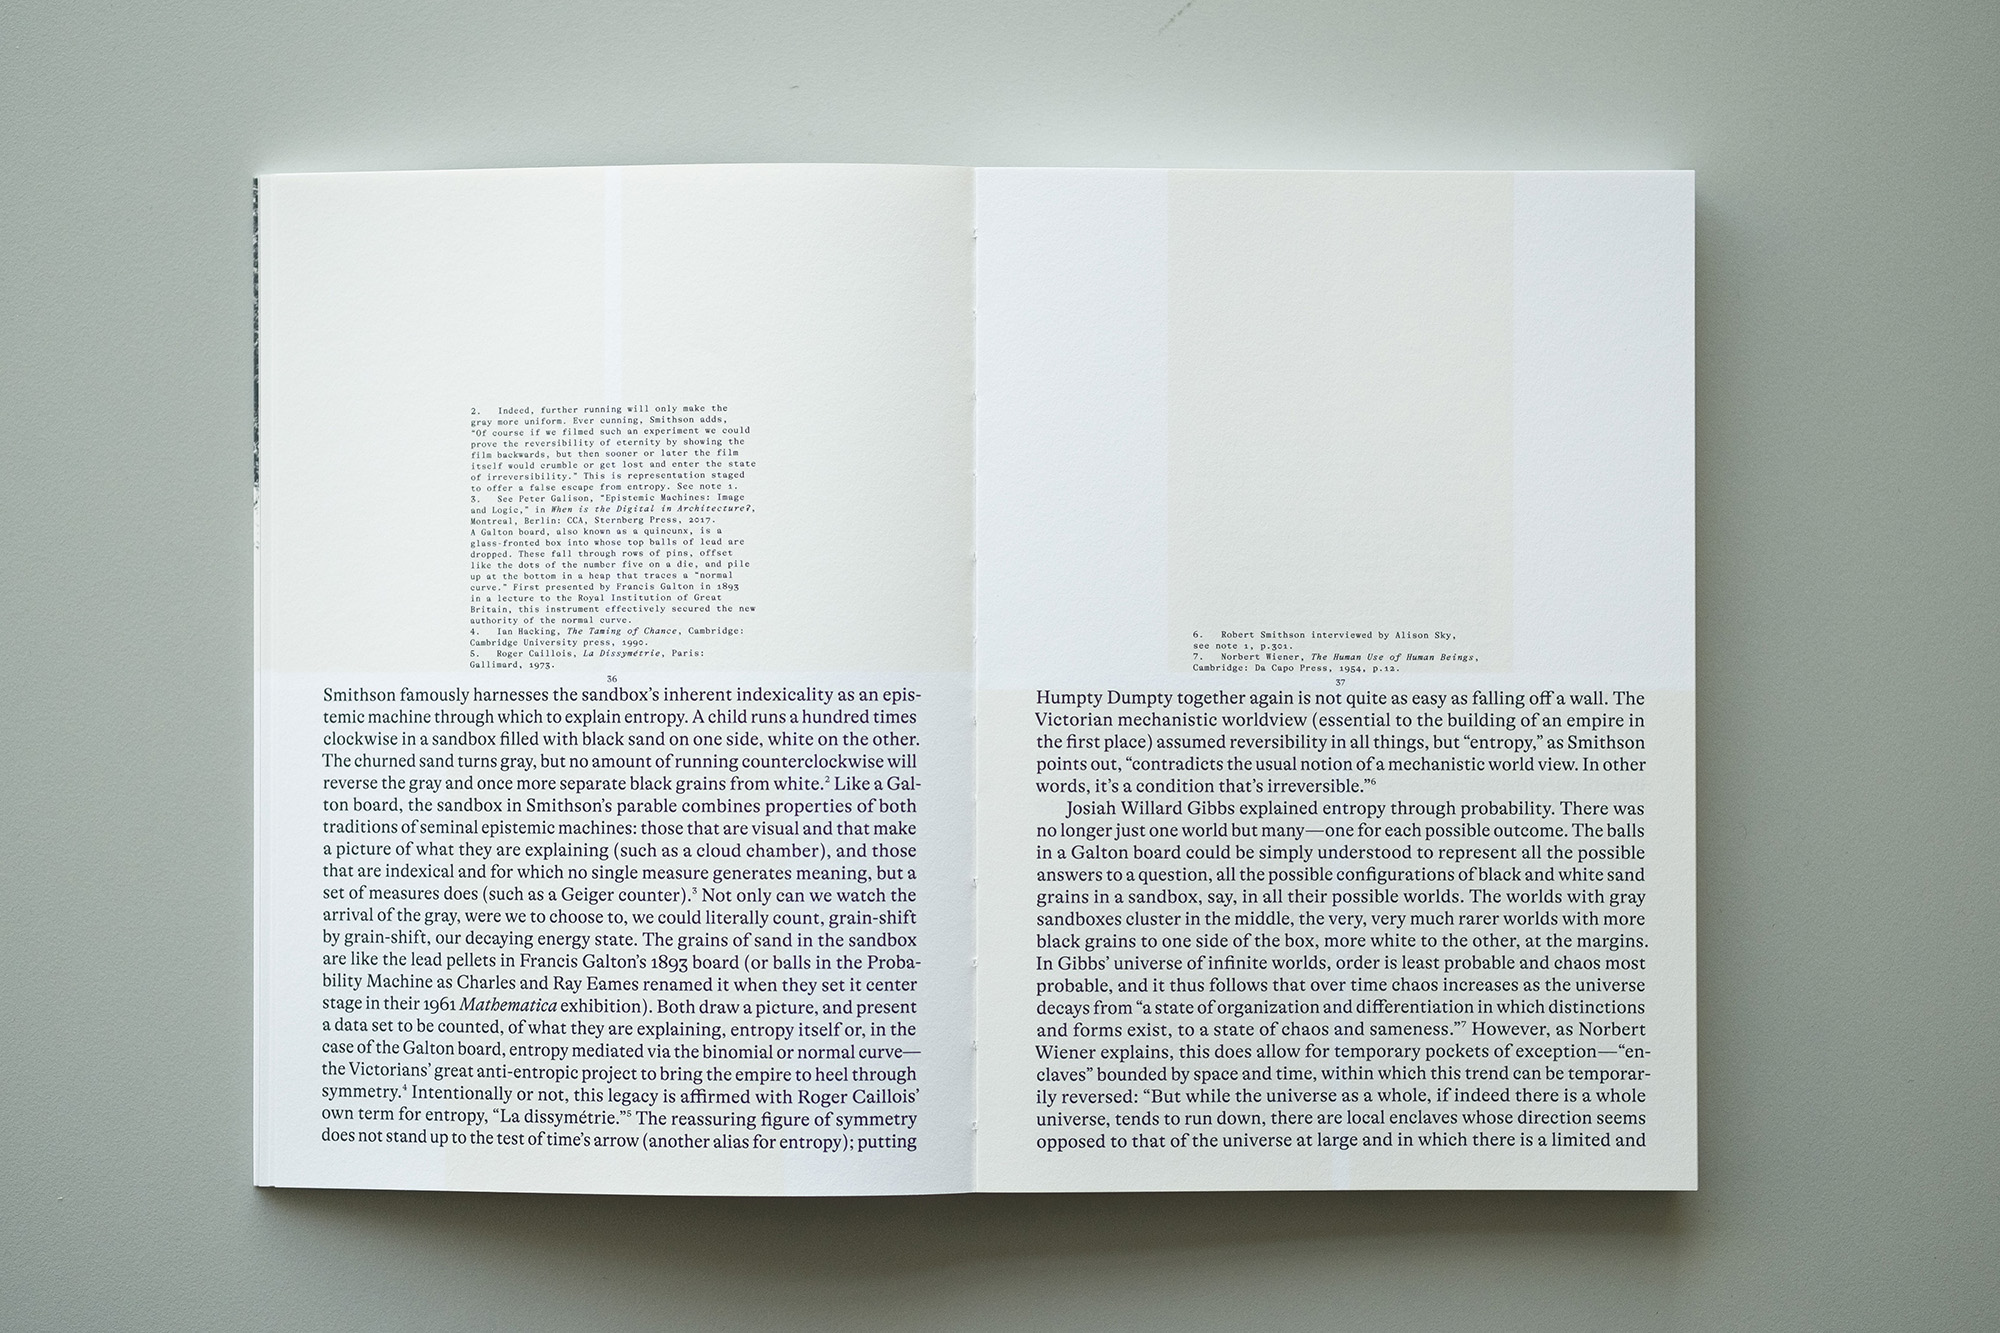 2. Indeed, further running will only make the
gray more uniform. Ever cunning, Smithson adds,
"Of course if we filmed such an experiment we could
prove the reversibility of eternity by showing the
film backwards, but then sooner or later the film
itself would crumble or get lost and enter the state
of irreversibility." This is representation staged
to offer a false escape from entropy. See note 1.
3. See Peter Galison, "Epistemic Machines: Image
and Logic," in When is the Digital in Architecture?,
Montreal, Berlin: CCA, Sternberg Press, 2017.
A Galton board, also known as a quincunx, is a
glass-fronted box into whose top balls of lead are
dropped. These fall through rows of pins, offset
like the dots of the number five on a die, and pile
up at the bottom in a heap that traces a "normal
curve." First presented by Francis Galton in 1893
in a lecture to the Royal Institution of Great
Britain, this instrument effectively secured the new
authority of the normal curve.
4. Ian Hacking, The Taming of Chance, Cambridge:
Cambridge University press, 1990.
5. Roger Caillois, La Dissymétrie, Paris:
Gallimard, 1973.
36
Smithson famously harnesses the sandbox’s inherent indexicality as an epis-
temic machine through which to explain entropy. A child runs a hundred times
clockwise in a sandbox filled with black sand on one side, white on the other.
The churned sand turns gray, but no amount of running counterclockwise will
reverse the gray and once more separate black grains from white.² Like a Gal-
ton board, the sandbox in Smithson’s parable combines properties of both
traditions of seminal epistemic machines: those that are visual and that make
a picture of what they are explaining (such as a cloud chamber), and those
that are indexical and for which no single measure generates meaning, but a
set of measures does (such as a Geiger counter).³ Not only can we watch the
arrival of the gray, were we to choose to, we could literally count, grain-shift
by grain-shift, our decaying energy state. The grains of sand in the sandbox
are like the lead pellets in Francis Galton’s 1893 board (or balls in the Proba-
bility Machine as Charles and Ray Eames renamed it when they set it center
stage in their 1961 Mathematica exhibition). Both draw a picture, and present
a data set to be counted, of what they are explaining, entropy itself or, in the
case of the Galton board, entropy mediated via the binomial or normal curve—
the Victorians’ great anti-entropic project to bring the empire to heel through
symmetry.⁴ Intentionally or not, this legacy is affirmed with Roger Caillois’
own term for entropy, “La dissymétrie.”⁵ The reassuring figure of symmetry
does not stand up to the test of time’s arrow (another alias for entropy); putting
6. Robert Smithson interviewed by Alison Sky,
see note 1, p.301.
7. Norbert Wiener, The Human Use of Human Beings,
Cambridge: Da Capo Press, 1954, p.12.
37
Humpty Dumpty together again is not quite as easy as falling off a wall. The
Victorian mechanistic worldview (essential to the building of an empire in
the first place) assumed reversibility in all things, but “entropy,” as Smithson
points out, “contradicts the usual notion of a mechanistic world view. In other
words, it’s a condition that’s irreversible.”⁶
Josiah Willard Gibbs explained entropy through probability. There was
no longer just one world but many—one for each possible outcome. The balls
in a Galton board could be simply understood to represent all the possible
answers to a question, all the possible configurations of black and white sand
grains in a sandbox, say, in all their possible worlds. The worlds with gray
sandboxes cluster in the middle, the very, very much rarer worlds with more
black grains to one side of the box, more white to the other, at the margins.
In Gibbs’ universe of infinite worlds, order is least probable and chaos most
probable, and it thus follows that over time chaos increases as the universe
decays from “a state of organization and differentiation in which distinctions
and forms exist, to a state of chaos and sameness.”⁷ However, as Norbert
Wiener explains, this does allow for temporary pockets of exception—“en-
claves” bounded by space and time, within which this trend can be temporar-
ily reversed: “But while the universe as a whole, if indeed there is a whole
universe, tends to run down, there are local enclaves whose direction seems
opposed to that of the universe at large and in which there is a limited and